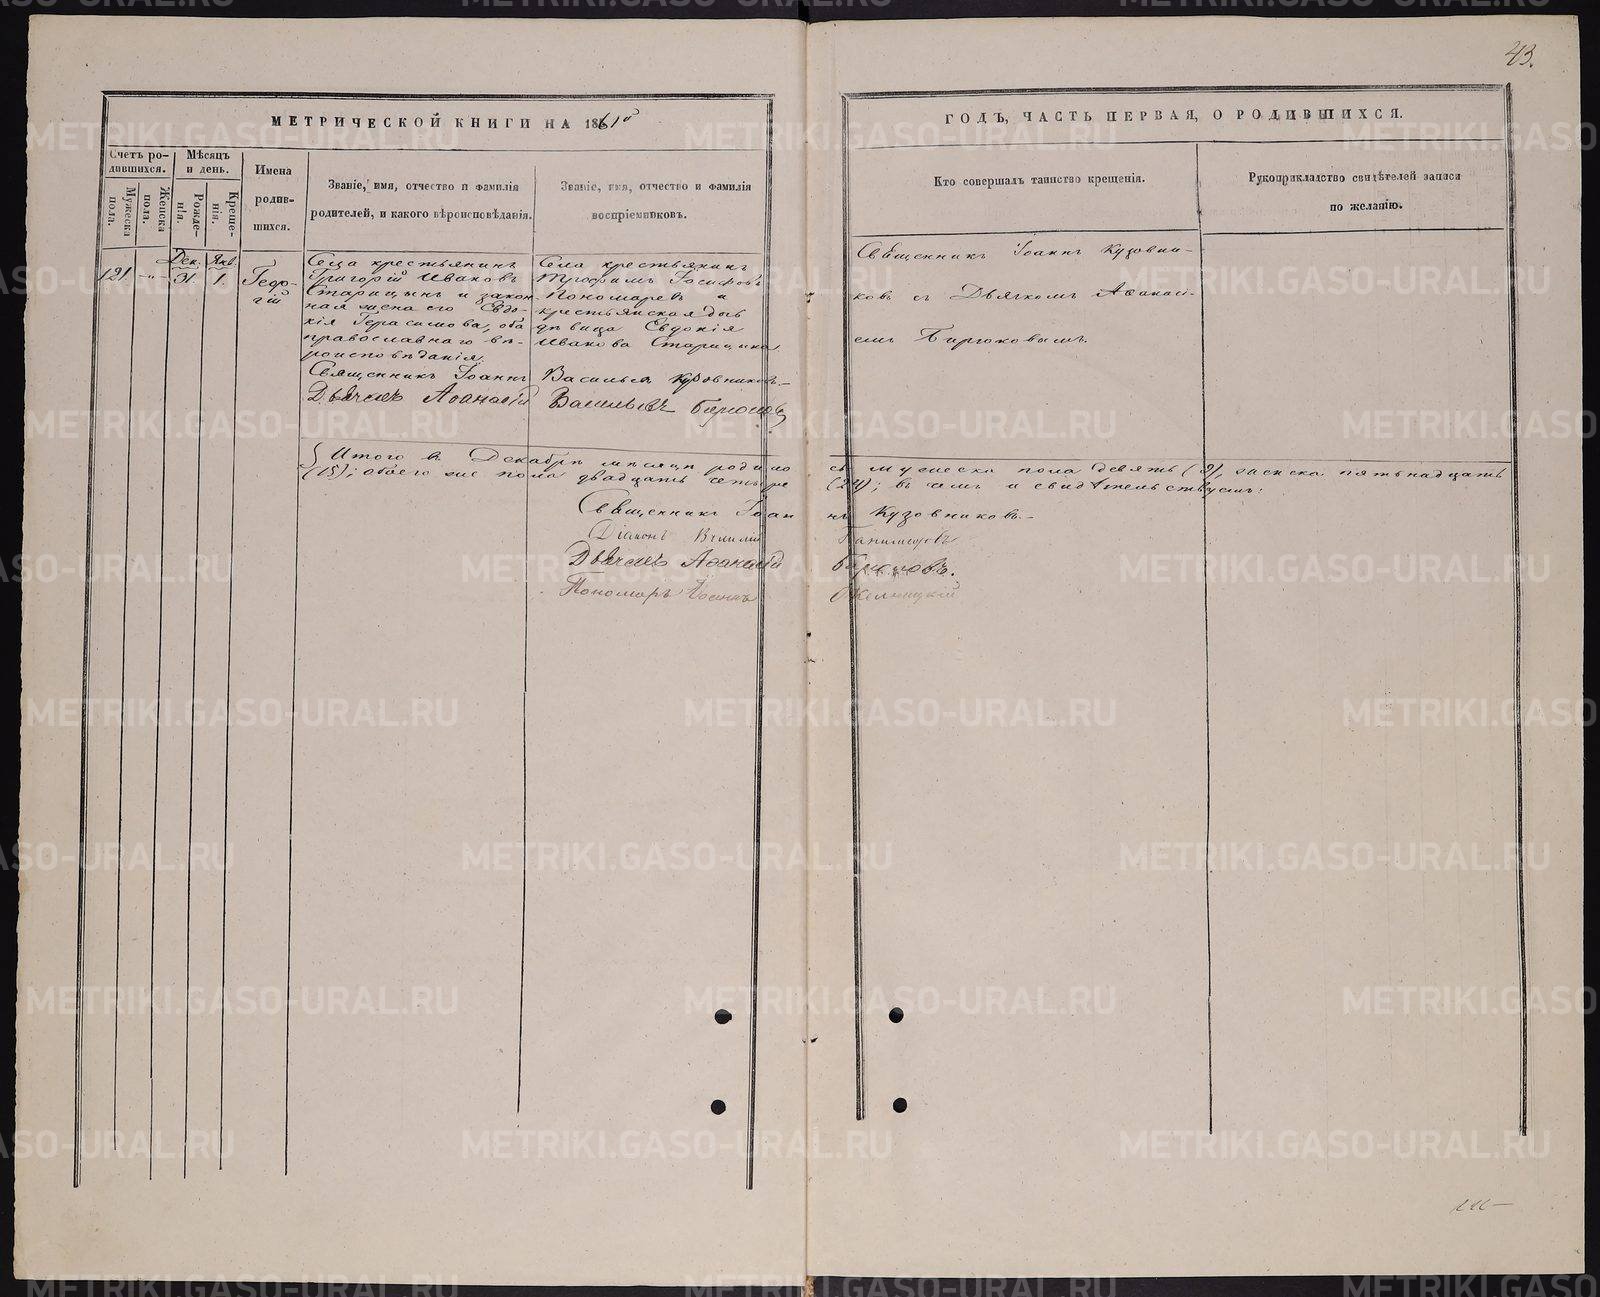 43.
МЕТРИЧЕСКОЙ КНИГИ НА 1861й
ГОДЪ, ЧАСТЬ ПЕРВАЯ, О РОДИВШИХСЯ.
Счетъ ро-
дившихся.
Мужеска пола.
Женска пола.
Мѣсяцъ
и день.
Рожде-
нія.
Креще-
нія.
Имена
родив-
шихся.
Званіе, имя, отчество и фамилія
родителей, и какого вѣроисповѣданія.
Званіе, имя, отчество и фамилія
воспріемниковъ.
Кто совершалъ таинство крещенія.
Рукоприкладство свидѣтелей записи
по желанію.
121
Дек.
31.
Янв.
1.
Геор-
гій
Села крестьянинъ
Григорій Ивановъ
Старицынъ и закон-
ная жена его Евдо-
кія Герасимова, оба
православнаго вѣ-
роисповѣданія.
Села крестьянинъ
Трофимъ Іосифовъ
Пономаревъ и
крестьянская
дѣвица Евдокія
Иванова Старицына
Священникъ Іоаннъ Кузовни-
ковъ съ Дьячкомъ Аѳанасі-
емъ Бирюковымъ.
Священникъ Іоаннъ Васильевъ Кузовниковъ
Дьячекъ Аѳанасій Васильевъ Бирюковъ
Итого въ Декабрѣ мѣсяцѣ родилось мужеска пола девять (9), женска пятьнадцать
(15); обоего же пола двадцать четыре (24); въ чемъ и свидѣтельствуемъ:
Священникъ Іоаннъ Кузовниковъ
Діаконъ
Дьячекъ Аѳанасій Бирюковъ.
Пономарь Іоаннъ
METRIKI.GASO-URAL.RU